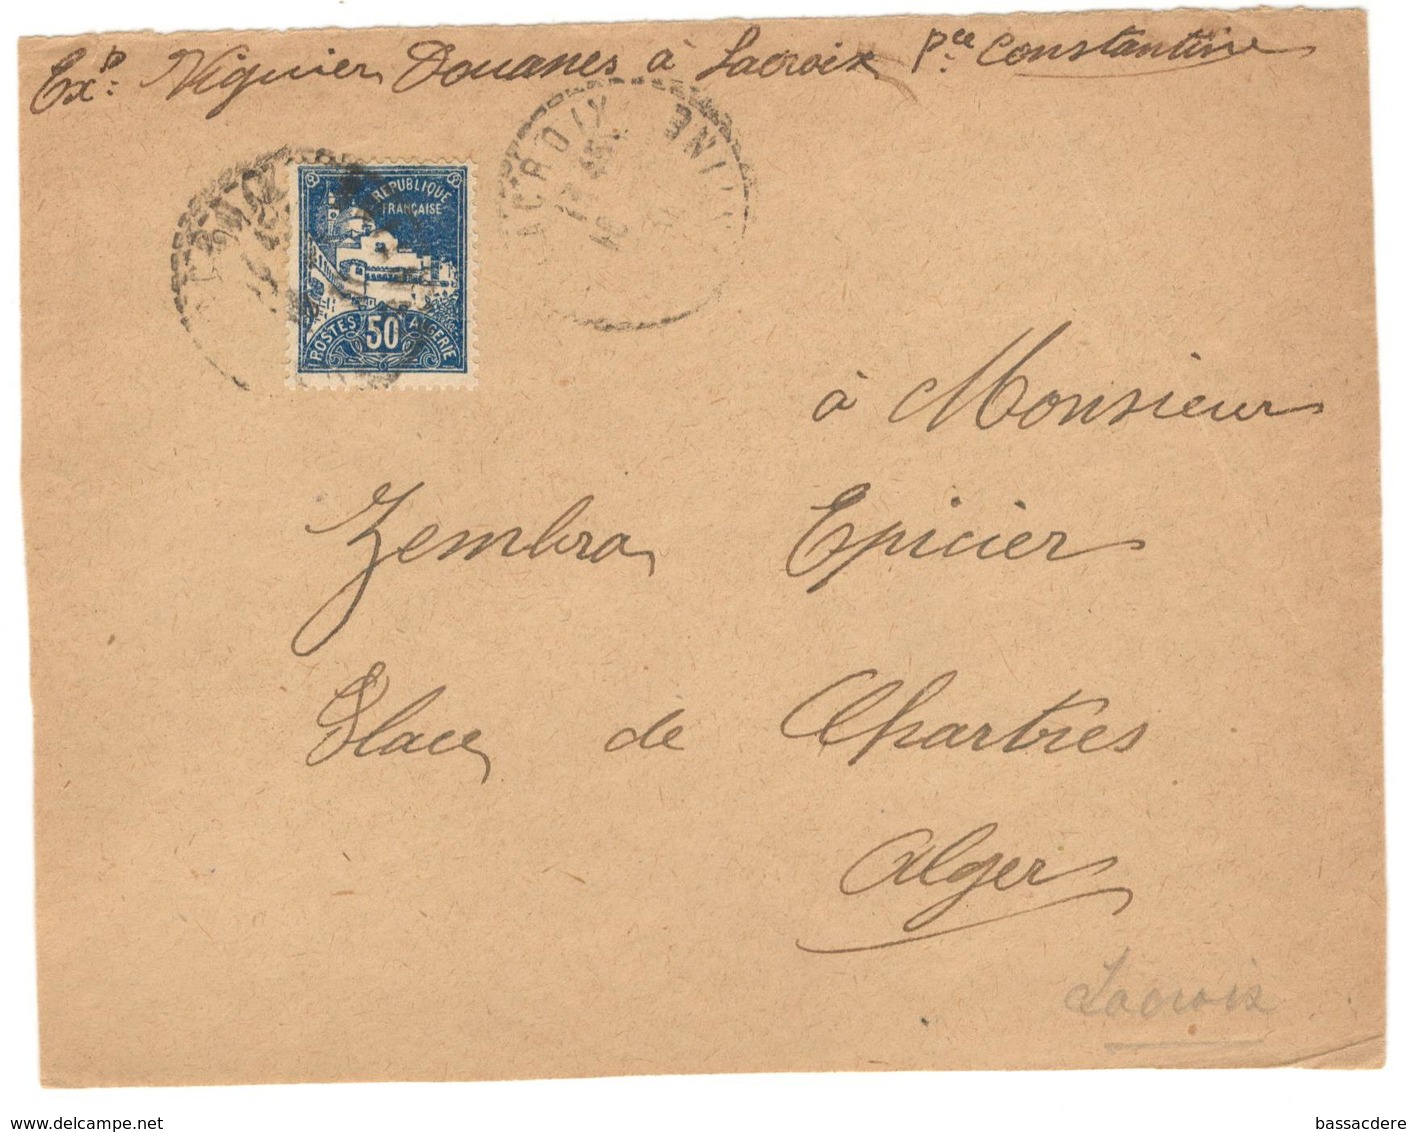 Exp: Viguier Douanes à Lacroix Pce Constantine
LACROIX
REPUBLIQUE
FRANÇAISE
50
POSTES ALGERIE
à Monsieur
Zembra Epicier
Place de Chartres
Alger
Lacroix
delcampe.net
bassacdere